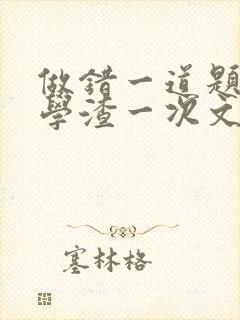 做錯一道題
學渣一次文
塞林格